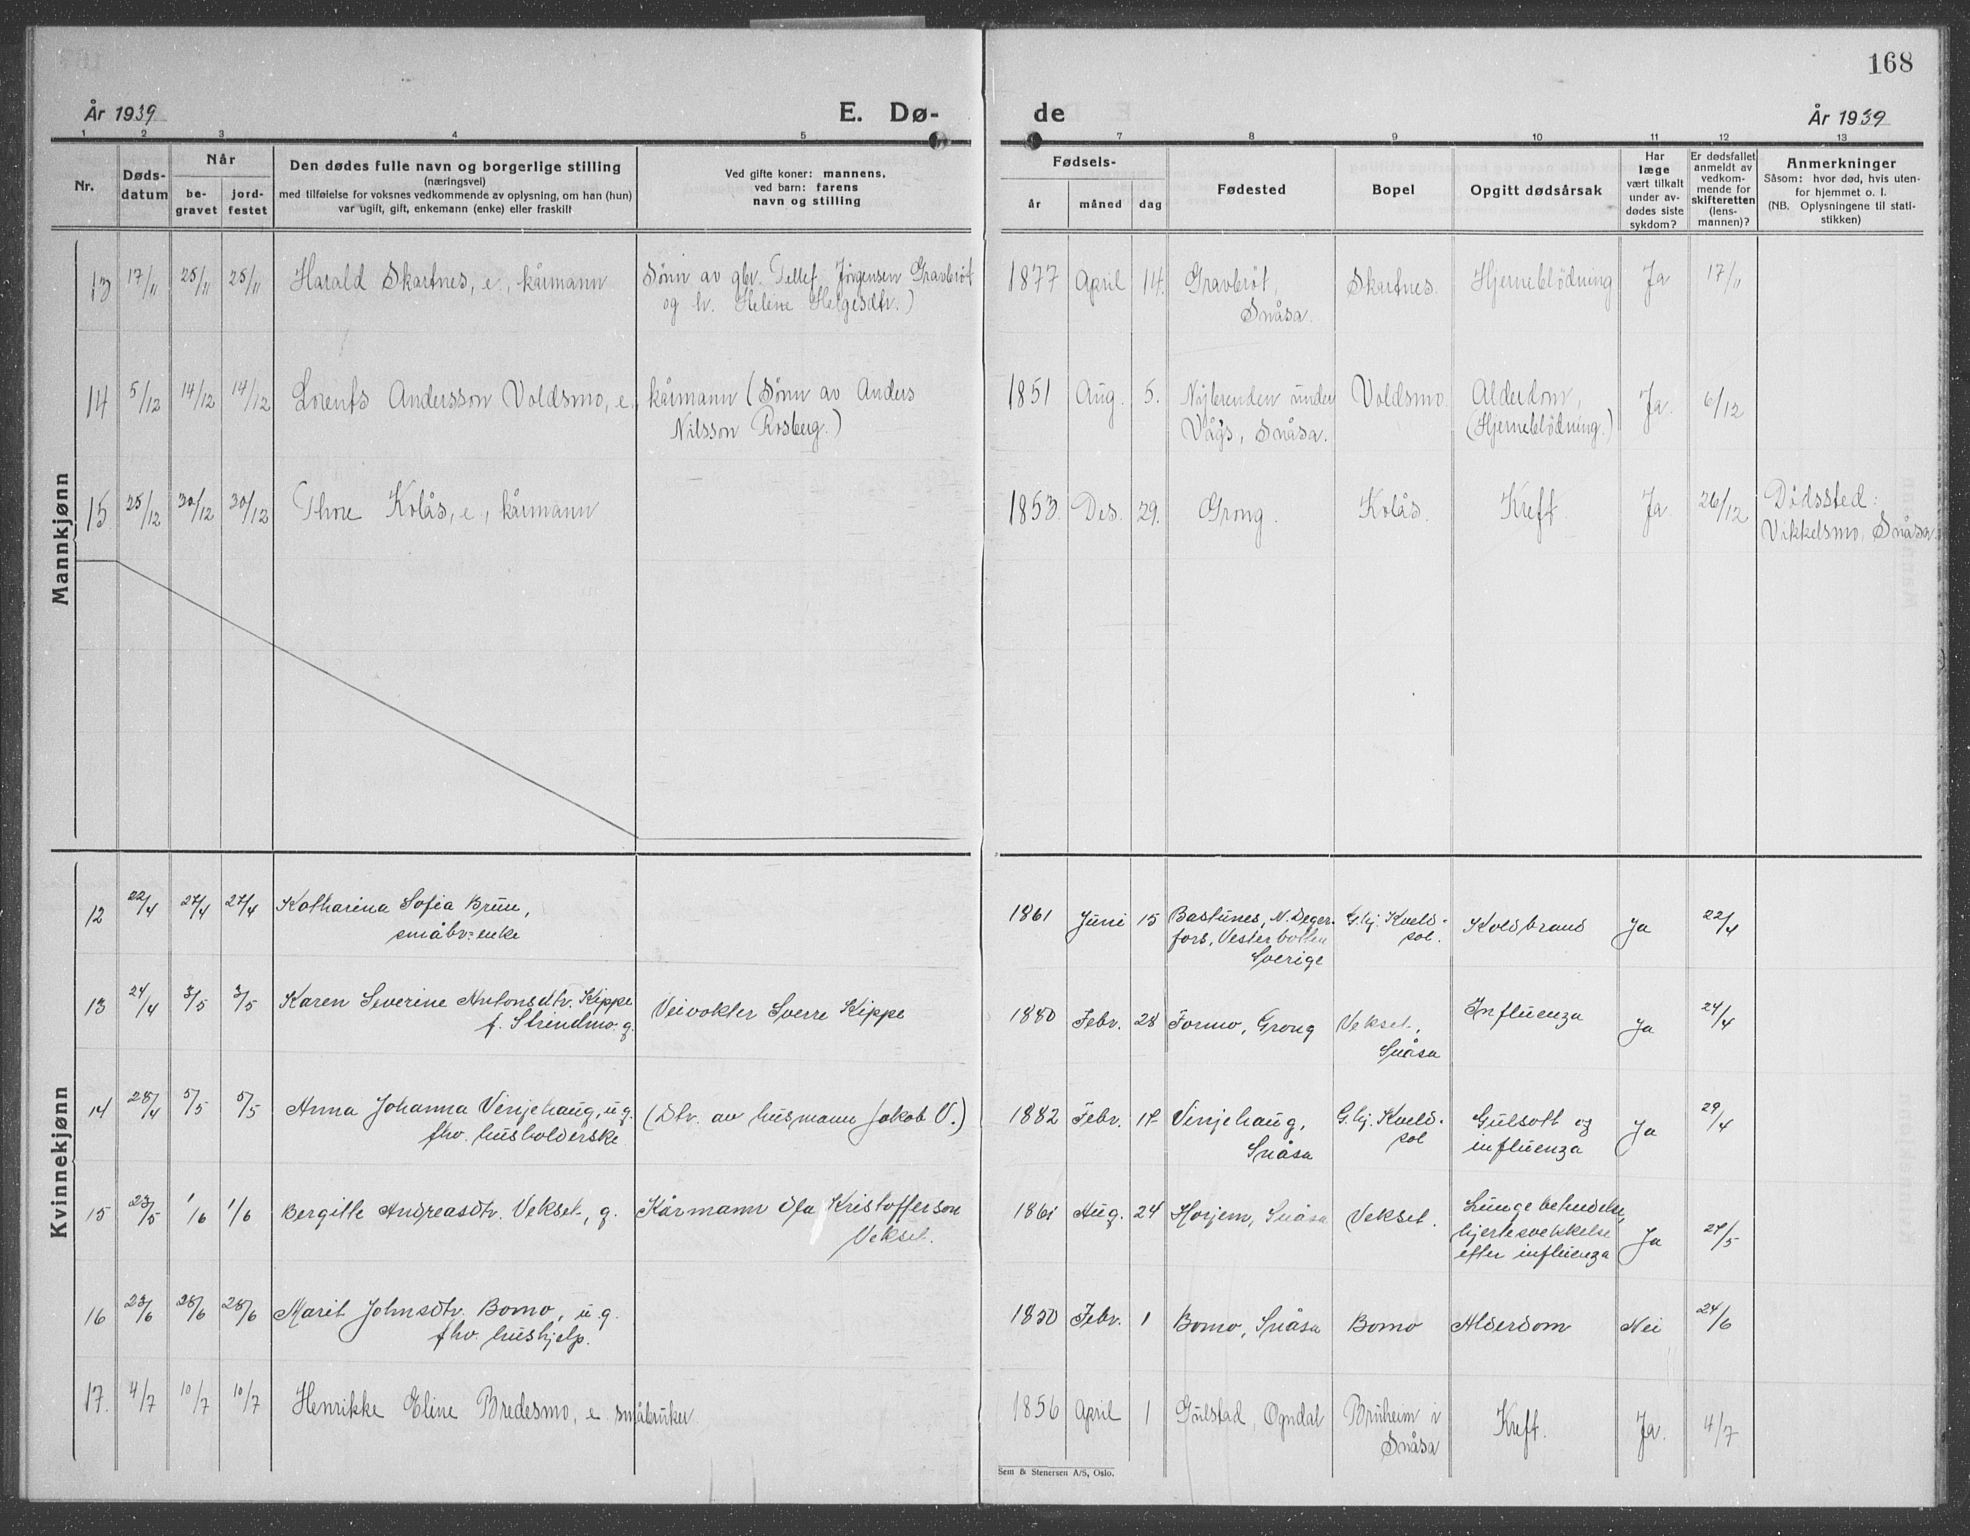 168
År 1939
E. Dø-
de
År 1939
1 2 3 4 5 7 8 9 10 11 12 13
Nr.
Døds-
datum
Når
be-
gravet
jord-
festet
Den dødes fulle navn og borgerlige stilling
(næringsvei)
med tilføielse for voksnes vedkommende av oplysning, om han (hun)
var ugift, gift, enkemann (enke) eller fraskilt
Ved gifte koner: mannens,
ved barn: farens
navn og stilling
Fødsels-
år
måned
dag
Fødested
Bopel
Opgitt dødsårsak
Har
læge
vært tilkalt
under av-
dødes siste
sykdom?
Er dødsfallet
anmeldt av
vedkom-
mende for
skifteretten
(lens-
mannen)?
Anmerkninger
Såsom: hvor død, hvis uten-
for hjemmet o. l.
(NB. Oplysningene til stati-
stikken)
Mannkjønn
13 17/11 25/11 25/11 Harald Skartnes, e., kårmann Sønn av gbr. Tellef Jørgensen Gravbrøt 1877 April 14. Gravbrøt, Skartnes. Hjerneblödning Ja 17/11
og h. Helene Helgesdtr.) Snåsa.
14 5/12 14/12 14/12 Lorents Andersson Voldsmo, e., kårmann (Sønn av Anders 1851 Aug. 5. under Voldsmo Alderdom, Ja. 6/12
Nilsson Rosberg.) Vågs, Snåsa. (Hjerneblödning.)
15 25/12 30/12 30/12 Thore Kolås, e., kårmann 1853 Des. 29. Grong. Kolås. Kreft. Ja. 26/12 Dödssted:
Vikkelsmo, Snåsa.
Kvinnekjønn
12 22/4 27/4 27/4 Katharina Sofia Brun, 1861 Juni 15 Bastunes, N. Deger- G.hj. Kveld- Koldbrand Ja 22/4
småbr: enke fors, Vesterbotten sol.
Sverige
13 24/4 3/5 3/5 Karen Severine Antonsdtr. Kippe Veivokter Sverre Kippe 1880 Febr. 28 Formo, Grong Vekset, Influenza Ja 24/4
f. Strindmo. g. Snåsa
14 28/4 5/5 5/5 Anna Johanna Vinjehaug, u.g. (Dtr. av husmann Jakob V.) 1882 Febr. Vinjehaug, G.hj. Kveld- Gulsott og Ja 29/4
fhv. husholderske. Snåsa sol influenza
15 23/5 1/6 1/6 Bergitte Andreasdtr. Vekset, g. Kårmann Ola Kristofferson 1861 Aug. 24 Horjem, Snåsa Vekset. Lungebetendelse,
Vekset. hjertesvekkelse Ja 24/5
efter influenza
16 23/6 28/6 28/6 Marit Johnsdtr. Bomo, u.g. 1850 Febr. 1 Bomo, Snåsa Bomo Alderdom Nei 24/6
fhv. hushjelp.
17. 4/7 10/7 10/7 Henrikke Eline Bredesmo, e. småbruker. 1856 April 1 Gulstad, Ogndal Bruheim i Kreft. Ja. 4/7
Snåsa
Sem & Stenersen A/S, Oslo.